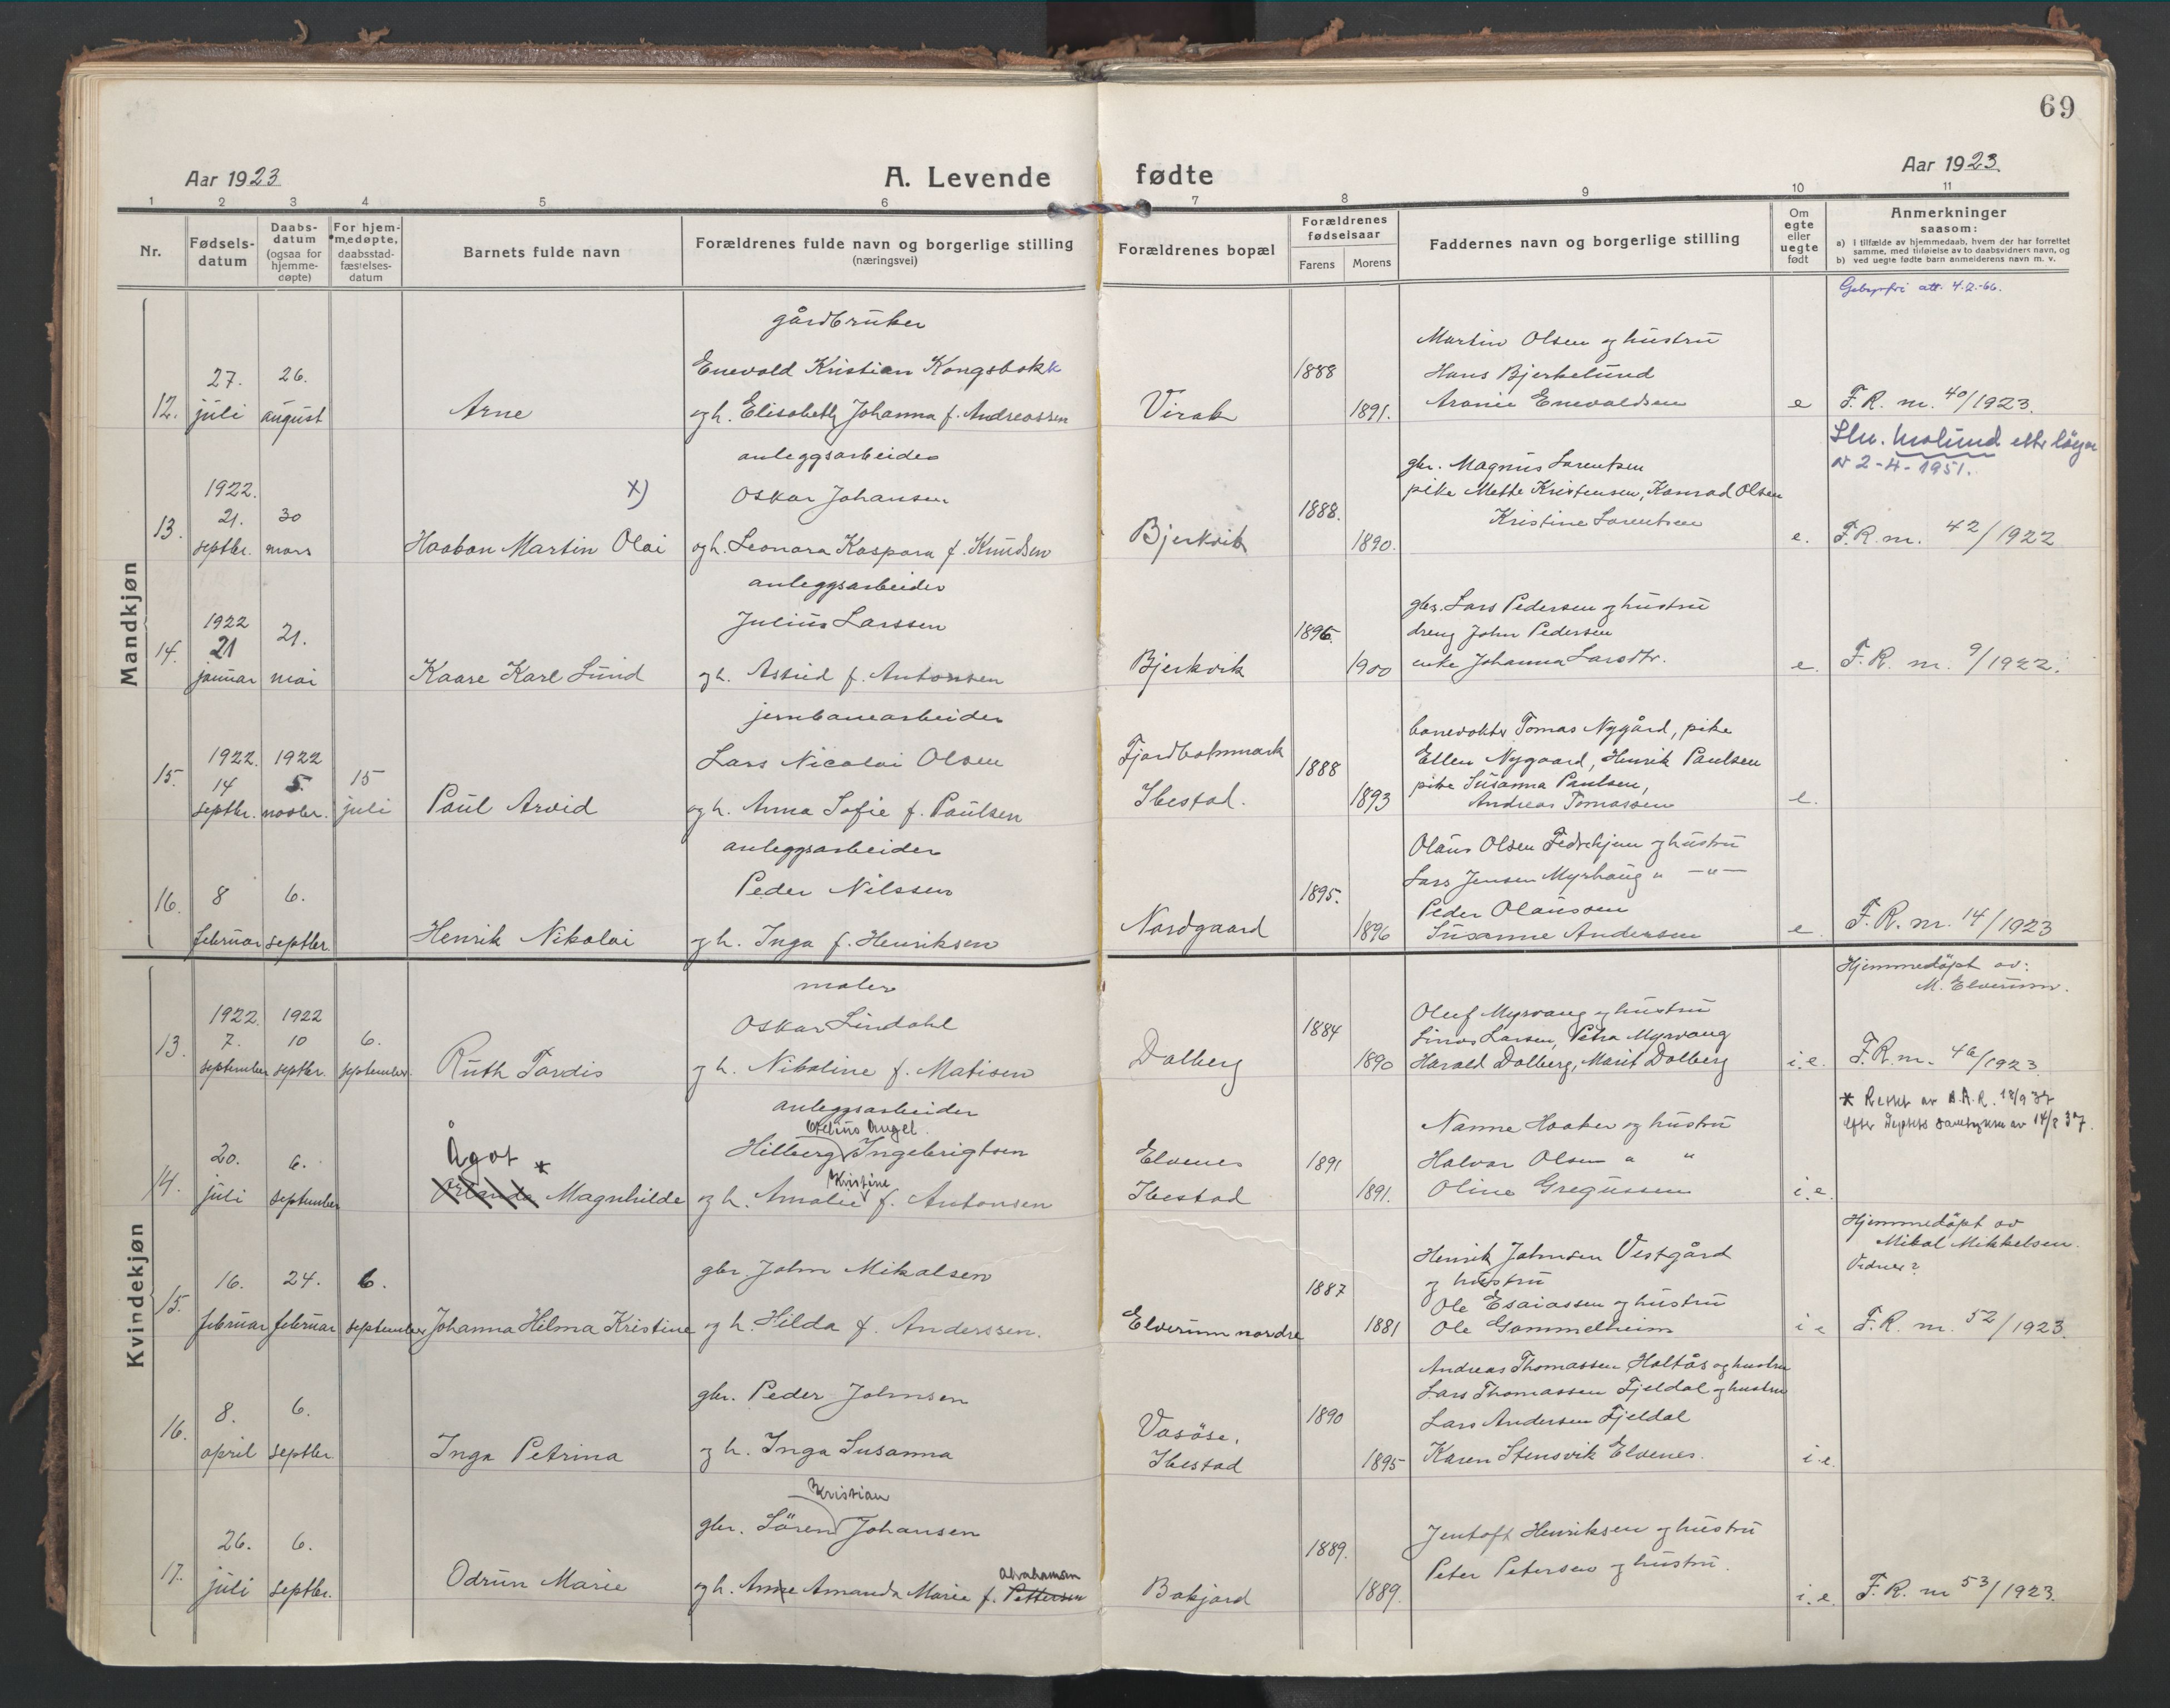 69
Aar 1923
A. Levende fødte
Aar 1923.
1 2 3 4 5 6 7 8 9 10 11
Nr.
Fødsels-
datum
Daabs-
datum
(ogsaa for
hjemme-
døpte)
For hjem-
medøpte,
daabsstad-
fæstelses-
datum
Barnets fulde navn
Forældrenes fulde navn og borgerlige stilling
(næringsvei)
Forældrenes bopæl
Forældrenes
fødselsaar
Farens Morens
Faddernes navn og borgerlige stilling
Om
egte
eller
uegte
født
Anmerkninger
saasom:
a) i tilfælde av hjemmedaab, hvem der har forrettet
samme, med tilføielse av to daabsvidners navn, og
b) ved uegte fødte barn anmelderens navn m. v.
Mandkjøn
12.
27.
juli
26.
august
Arne
gårdbruker
Enevold Kristian Kongsbakk
og h. Elisabeth Johanna f. Andreassen
Virak
1888
1891.
Martin Olsen og hustru
Hans Bjerkelund
Aranie Enevoldsen
e
Gebyrfri att. 4-2-66.
F. R. nr. 40/1923.
13.
1922.
21.
septbr.
30
mars
Haakon Martin Olai
x)
anleggsarbeider
Oskar Johansen
og h. Leonara Kaspara f. Knudsen
Bjerkvik
1888.
1890.
gbr. Magnus Larentsen
pike Mette Kristensen, Konrad Olsen
Kristine Larentsen
e.
av 2-4-1951.
F. R. nr. 42/1922
14.
1922
21
januar
21.
mai
Kaare Karl Lund
anleggsarbeider
Julius Larssen
og h. Astrid f. Antonsen
Bjerkvik
1896.
1900
gbr. Lars Pedersen og hustru
dreng John Pedersen
enke Johanna Larsdtr.
e.
F. R. nr. 9/1922.
15.
1922.
14
septbr.
1922
5.
novbr.
15
juli
Paul Arvid
jernbanearbeider
Lars Nicolai Olsen
og h. Anna Sofie f. Paulsen
Fjordbotnmark
Ibestad.
1888
1893
banevokter Tomas Nygård, pike
Ellen Nygaard, Henrik Paulsen
pike Susanna Paulsen,
Andreas Tomassen
e.
16.
8
februar
6.
septbr.
Henrik Nikolai
anleggsarbeider
Peder Nilssen
og h. Inga f. Henriksen
Nordgaard
1895.
1896
Olaus Olsen og hustru
Lars Jensen Myrhaug " —"—
Peder Olaussen
Susanne Andersen
e
F. R. nr. 14/1923
Kvindekjøn
13.
1922.
7.
september
1922
10
septbr.
6.
september
Ruth Tordis
maler
Oskar Lindahl
og h. Nikoline f. Matisen
Dalberg
1884
1890
Oluf Myrvang og hustru
Larsen, Petra Myrvang
Harald Dalberg, Marit Dalberg
i.e.
Hjemmedöpt av:
M. Elverum.
F. R. nr. 46/1923
14.
20.
juli
6.
september
Ågot *
Magnhilde
anleggsarbeider
Angel.
Hilberg Ingebrigtsen
Kristine
og h. Amalie f. Antonsen
Elvenes
Ibestad
1891
1891.
Nanne Haaker og hustru
Halvar Olsen " "
Oline Gregussen
i.e.
* Rettet av A.A.R. 18/9 37
efter Deptets samtykke av 14/8 37.
15.
16.
februar
24.
februar
6.
september
Johanna Hilma Kristine
gbr. John Mikalsen
og h. Hilda f. Anderssen.
Elverum nordre
1887
1881
Henrik Johnsen Vestgård
og hustru
Ole Esaiassen og hustru
Ole Gammelheim
i e
Hjemmedöpt av
Mikal Mikkelsen.
Vidner?
F. R. nr. 52/1923.
16.
8.
april
6.
septbr
Inga Petrina
gbr. Peder Johnsen
og h. Inga Susanna
Vasöse,
Ibestad
1890
1895
Andreas Thomassen Holtås og hustru
Lars Thomassen Fjeldal og hustru
Lars Andersen Fjeldal
Karen Stensvik Elvenes.
i.e.
17.
26.
juli
6.
septbr.
Odrun Marie
Kristian
gbr. Sören Johansen
Abrahamsen
og h. Anne Amanda Marie f. Pettersen
Bakjord
1889.
1889.
Jentoft Henriksen og hustru
Peter Petersen og hustru.
i.e.
F. R. nr 53/1923.